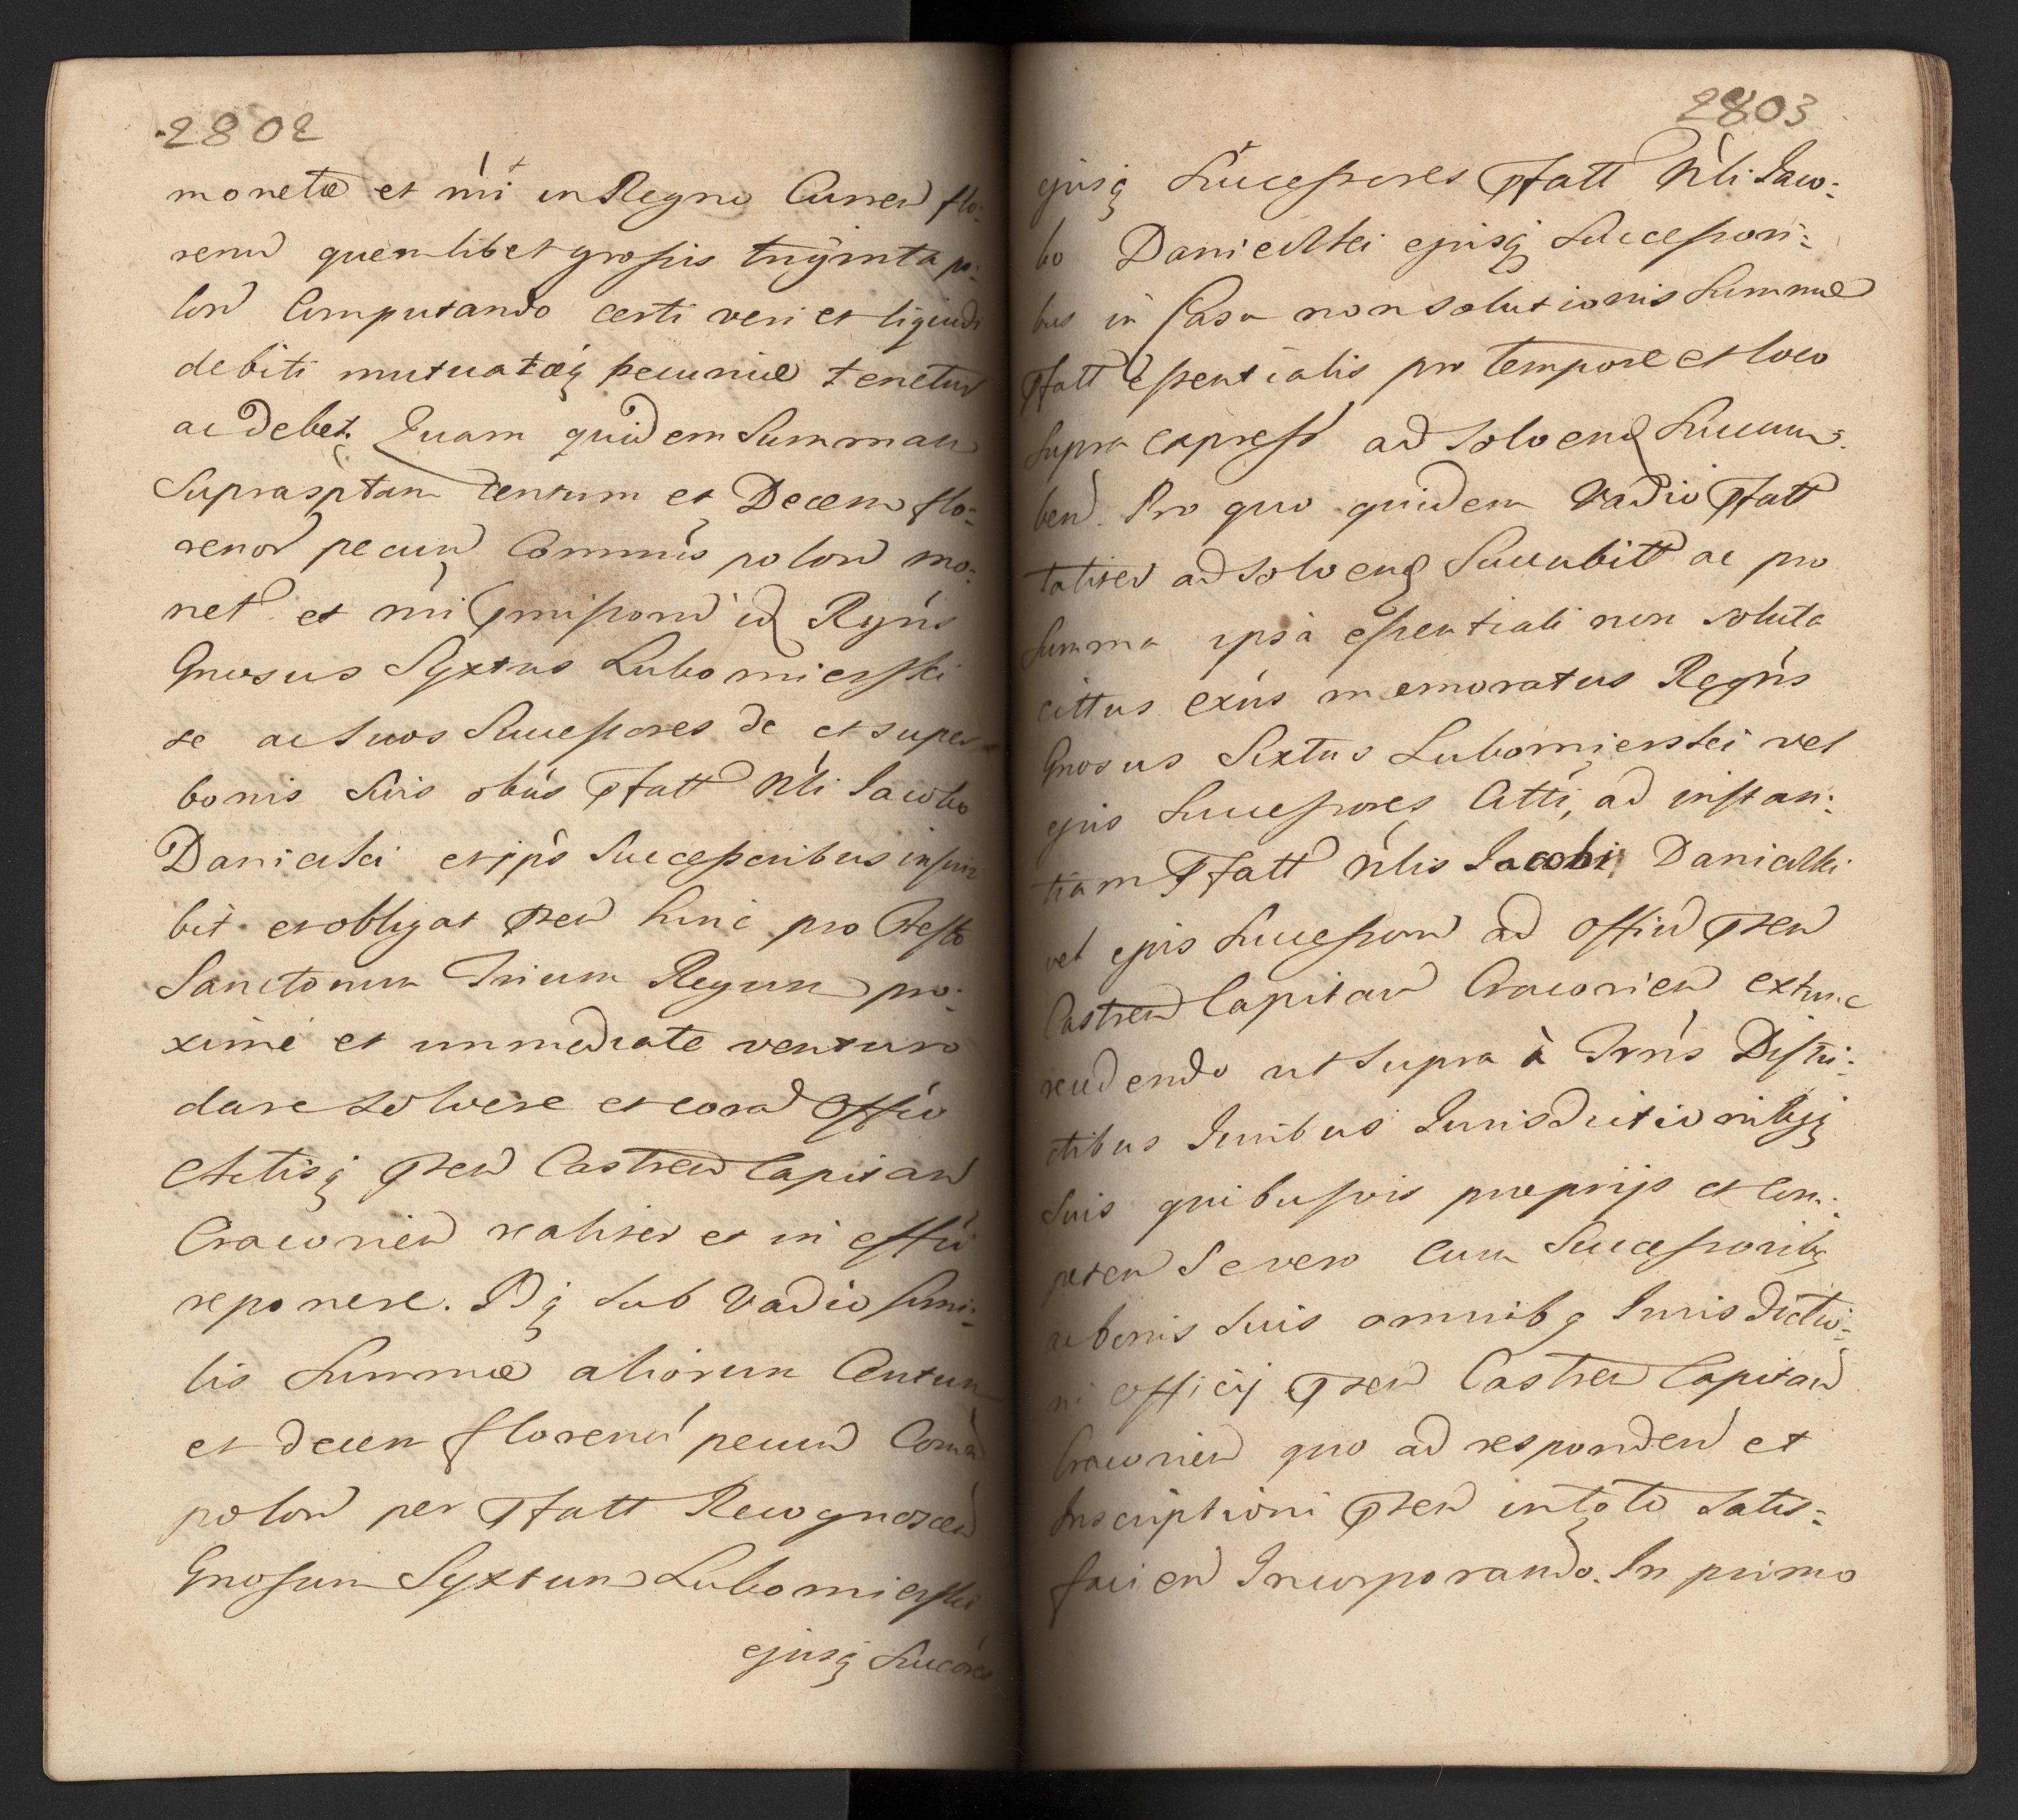 2802
monetæ et nri in Regno Curren flo:
renu quemlibet grossis triginta po:
lon Computando certi veri et liquidi
debiti mutuatæq pecuniæ tenetur
ac debet. Quam quidem Summam
Suprasptam Centum et Decem flo:
renor pecun Commnis polon mo:
net et nri in Rgns
Gnosus Syxtus Lubomierski
se ac suos Successores de et super
bonis suis obus Pfatt Nli Jacobo
Danielski et ejus Successoribus inscri
bit et obligat Pten hinc pro Festo
Sanctorum Trium Regum pro:
xime et immediate venturo
dare solvere et coram Offio
Actisq Pten Castren Capitan
Cracovien realiter et in effu
reponere. Idq sub Vadio simi:
lis Summæ aliorum Centum
et decem florenu pecun Comn
polon per Pfatt Recognoscen
Gnosum Syxtum Lubomierski
ejusq Succores
2803
ejusq Successores Pfatt Nli Jaco:
bo Danielski ejusq Successori:
bus in Casu non solutionis Summæ
Pfatt essentialis pro tempore et loco
supra express ad solvend Succum:
ben. Pro quo quidem Vadio Pfatt
taliter ad solvend Succubitt ac pro
Summa ipsa essentiali non soluta
cittus exns memoratus Regns
Gnosus Sixtus Lubomierski vel
ejus Successores Citti, ad instan:
tiam Pfatt Nlis Jacobi Danielski
vel ejus Successorum ad Offiu Pten
Castren Capitan Cracovien extunc
recedendo ut supra à Trris Distri:
ctibus Juribus Jurisdictionibusq
suis quibusvis proprijs et com:
peten Se vero cum Successoribq
ac bonis suis omnibq Jurisdictio:
ni Officij Pten Castren Capitan
Cracovien quo ad responden et
Inscriptioni Pten in toto satis:
facien Incorporando. In primo